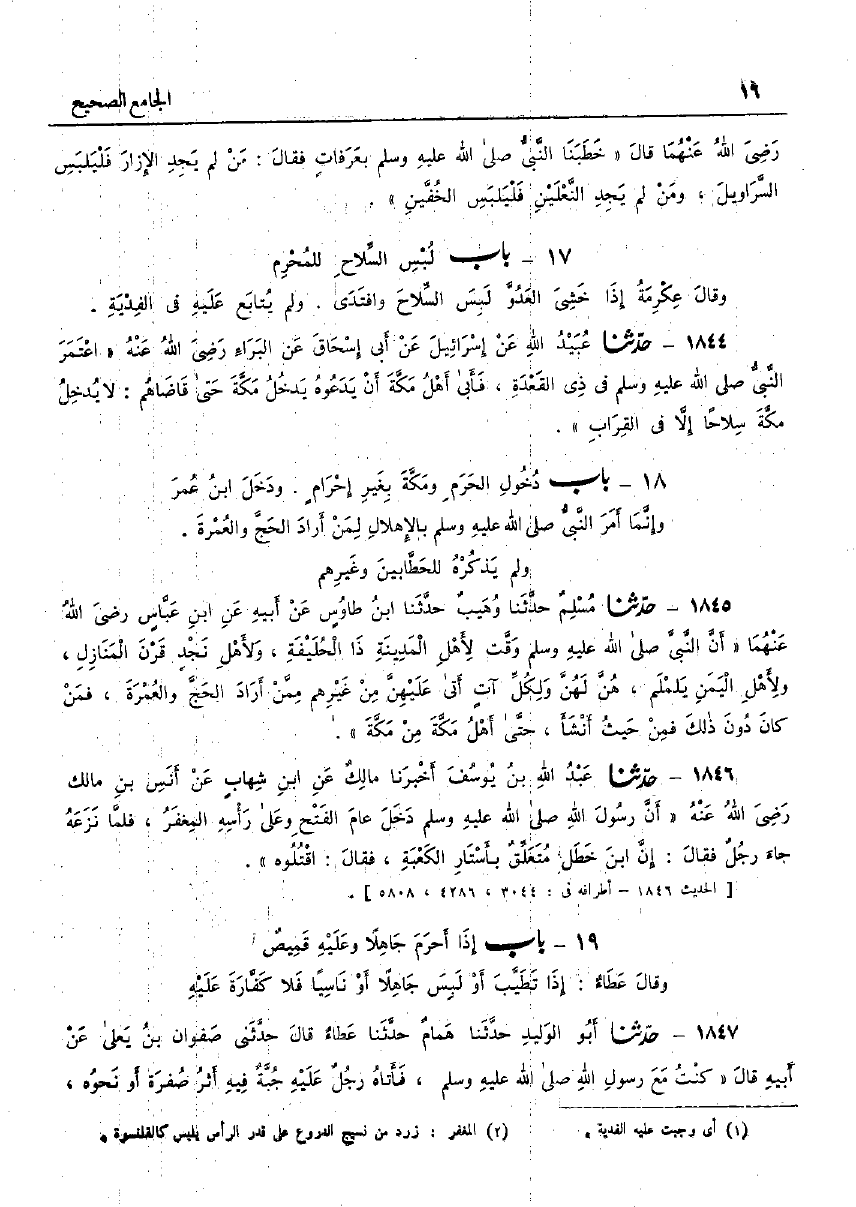 ١٩ الجامع الصحيح
رَضِىَ اللهُ عَنْهُمَا قالَ « خَطَبَنَا النَّبِىُّ صلىٰ الله عليهِ وسلم بعَرَفاتٍ فقالَ : مَنْ لم يَجِدِ الإِزارَ فَلْيَلبَسِ
السَّرَاوِيلَ ، ومَنْ لم يَجِدِ النَّعْلَيْنِ فَلْيَلبَسِ الخُفَّينِ » .
١٧ - باب لُبْسِ السِّلاحِ للمُحْرِمِ
وقالَ عِكْرِمَةُ إذَا خَشِىَ العَدُوَّ لَبِسَ السِّلاحَ وافتَدَى . ولم يُتابَع عَلَيهِ فى الفِدْيَةِ .
١٨٤٤ - حدّثنا عُبَيْدُ اللهِ عَنْ إسْرَائِيلَ عَنْ أبى إسْحَاقَ عَنِ البَرَاءِ رَضِىَ اللهُ عَنْهُ « اعْتَمَرَ
النَّبىُّ صلى الله عليهِ وسلم فى ذِى القَعْدَةِ ، فَأَبىٰ أَهْلُ مَكَّةَ أَنْ يَدَعُوهُ يَدخُلُ مَكَّةَ حَتىٰ قَاضَاهُم : لا يُدخِلُ
مكَّةَ سِلاحًا إلَّا فى القِرَابِ » .
١٨ - باب دُخُولِ الحَرَمِ ومَكَّةَ بِغَيرِ إحْرَامٍ . ودَخَلَ ابنُ عُمرَ
وإنَّمَا أَمَرَ النَّبىُّ صلىٰ الله عليهِ وسلم بالإهلالِ لِمَنْ أرادَ الحَجَّ والعُمْرةَ .
ولم يَذكُرْهُ للحَطَّابينَ وغَيرِهم
١٨٤٥ - حدّثنا مُسْلِمٌ حدَّثَنا وُهَيبٌ حدَّثَنا ابنُ طاوُسٍ عَنْ أبيهِ عَنِ ابنِ عَبَّاسٍ رضىَ اللهُ
عَنْهُمَا « أنَّ النَّبىَّ صلىٰ الله عليهِ وسلم وَقَّت لِأهْلِ الْمَدِينةِ ذَا الْحُلَيْفَةِ ، وَلأهْلِ نَجْدٍ قَرْنَ الْمَنَازِلِ ،
ولِأهْلِ الْيَمَنِ يَلَملَم ، هُنَّ لَهُنَّ وَلِكُلِّ آتٍ أتىٰ عَلَيْهِنَّ مِنْ غَيْرِهِم مِمَّنْ أَرَادَ الحَجَّ والعُمْرَةَ ، فمَنْ
كانَ دُونَ ذٰلكَ فمِنْ حَيثُ أنْشَأَ ، حتَّىٰ أهْلُ مَكَّةَ مِنْ مَكَّةَ » .
١٨٤٦ - حدّثنا عَبْدُ اللهِ بنُ يُوسُفَ أخْبرَنا مالِكٌ عَنِ ابنِ شِهابٍ عَنْ أنَسِ بنِ مالك
رَضِىَ اللهُ عَنْهُ « أنَّ رسُولَ اللهِ صلىٰ الله عليهِ وسلم دَخَلَ عامَ الفَتْحِ وعَلىٰ رَأْسِهِ المِغفَرُ ، فلمَّا نَزَعَهُ
جاءَ رجُلٌ فقالَ : إنَّ ابنَ خَطَلٍ مُتَعَلِّقٌ بأَستَارِ الكَعْبَةِ ، فقالَ : اقْتُلُوه » .
[ الحديث ١٨٤٦ - أطرافه فى : ٣٠٤٤ ، ٤٢٨٦ ، ٥٨٠٨ ] .
١٩ - باب إذَا أحرَمَ جَاهِلًا وعَلَيْهِ قَمِيصٌ
وقالَ عَطَاءٌ : إذَا تَطَيَّبَ أوْ لَبِسَ جَاهِلًا أوْ نَاسِيًا فَلا كَفَّارَةَ عَلَيْهِ
١٨٤٧ - حدّثنا أبُو الوَليدِ حدَّثَنا هَمامٌ حدَّثَنا عَطاءٌ قالَ حدَّثَنى صَفوان بنُ يَعلىٰ عَنْ
أبيهِ قالَ « كنْتُ مَعَ رسولِ اللهِ صلىٰ الله عليهِ وسلم ، فَأتاهُ رجُلٌ عَلَيْهِ جُبَّةٌ فِيهِ أثرُ صُفرَة أو نَحوُه ،
(١) أى وجبت عليه الفدية . (٢) المغفر : زرد من نسيج الدروع على قدر الرأس يلبس كالقلنسوة .